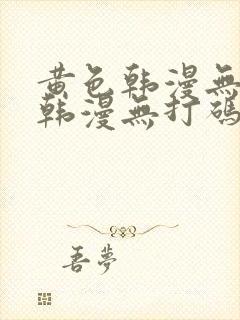 黄色韩漫無
韩漫無打碼
吾夢